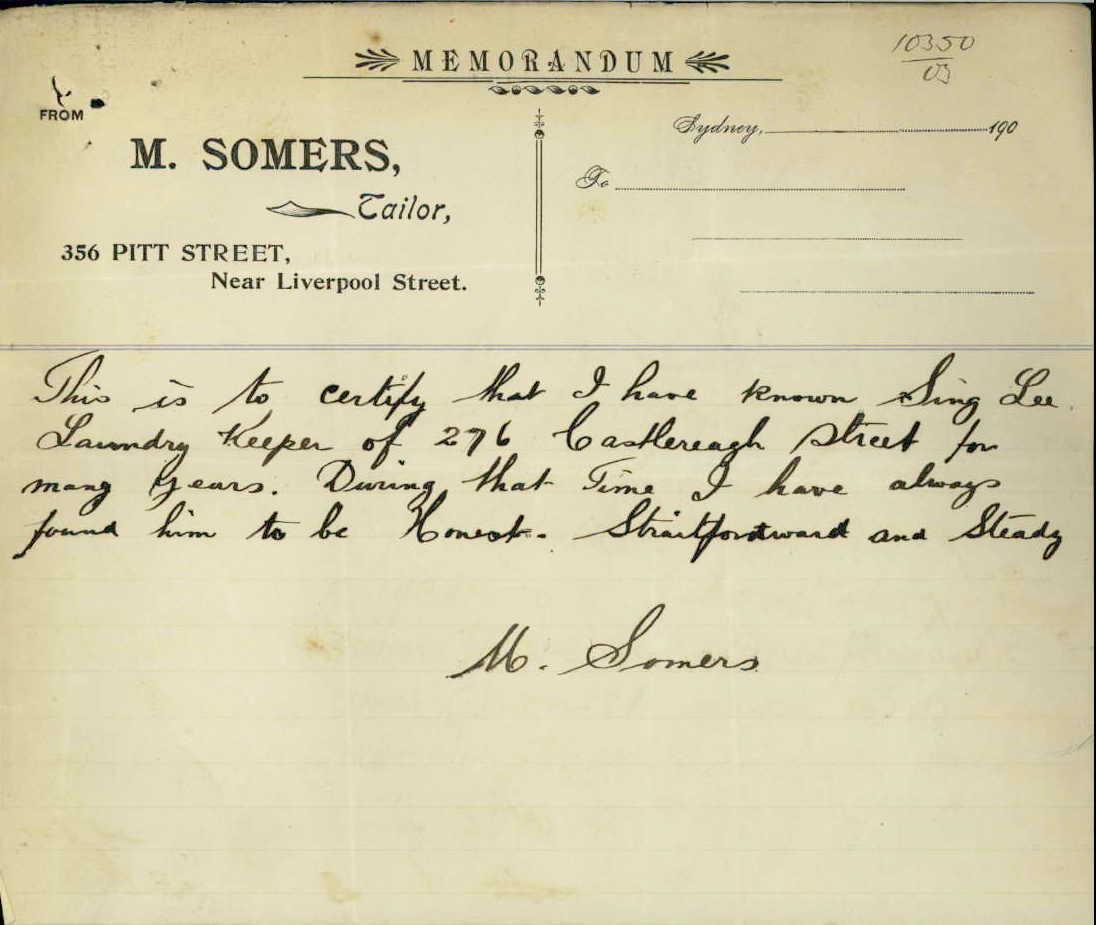 MEMORANDUM
10350
03
FROM
M. SOMERS,
Tailor,
356 PITT STREET,
Near Liverpool Street.
Sydney, 190
To
This is to certify that I have known Sing Lee
Laundry Keeper of 276 Castlereagh Street for
many years. During that Time I have always
found him to be Honest. Straitfordtward and Steady
M. Somers